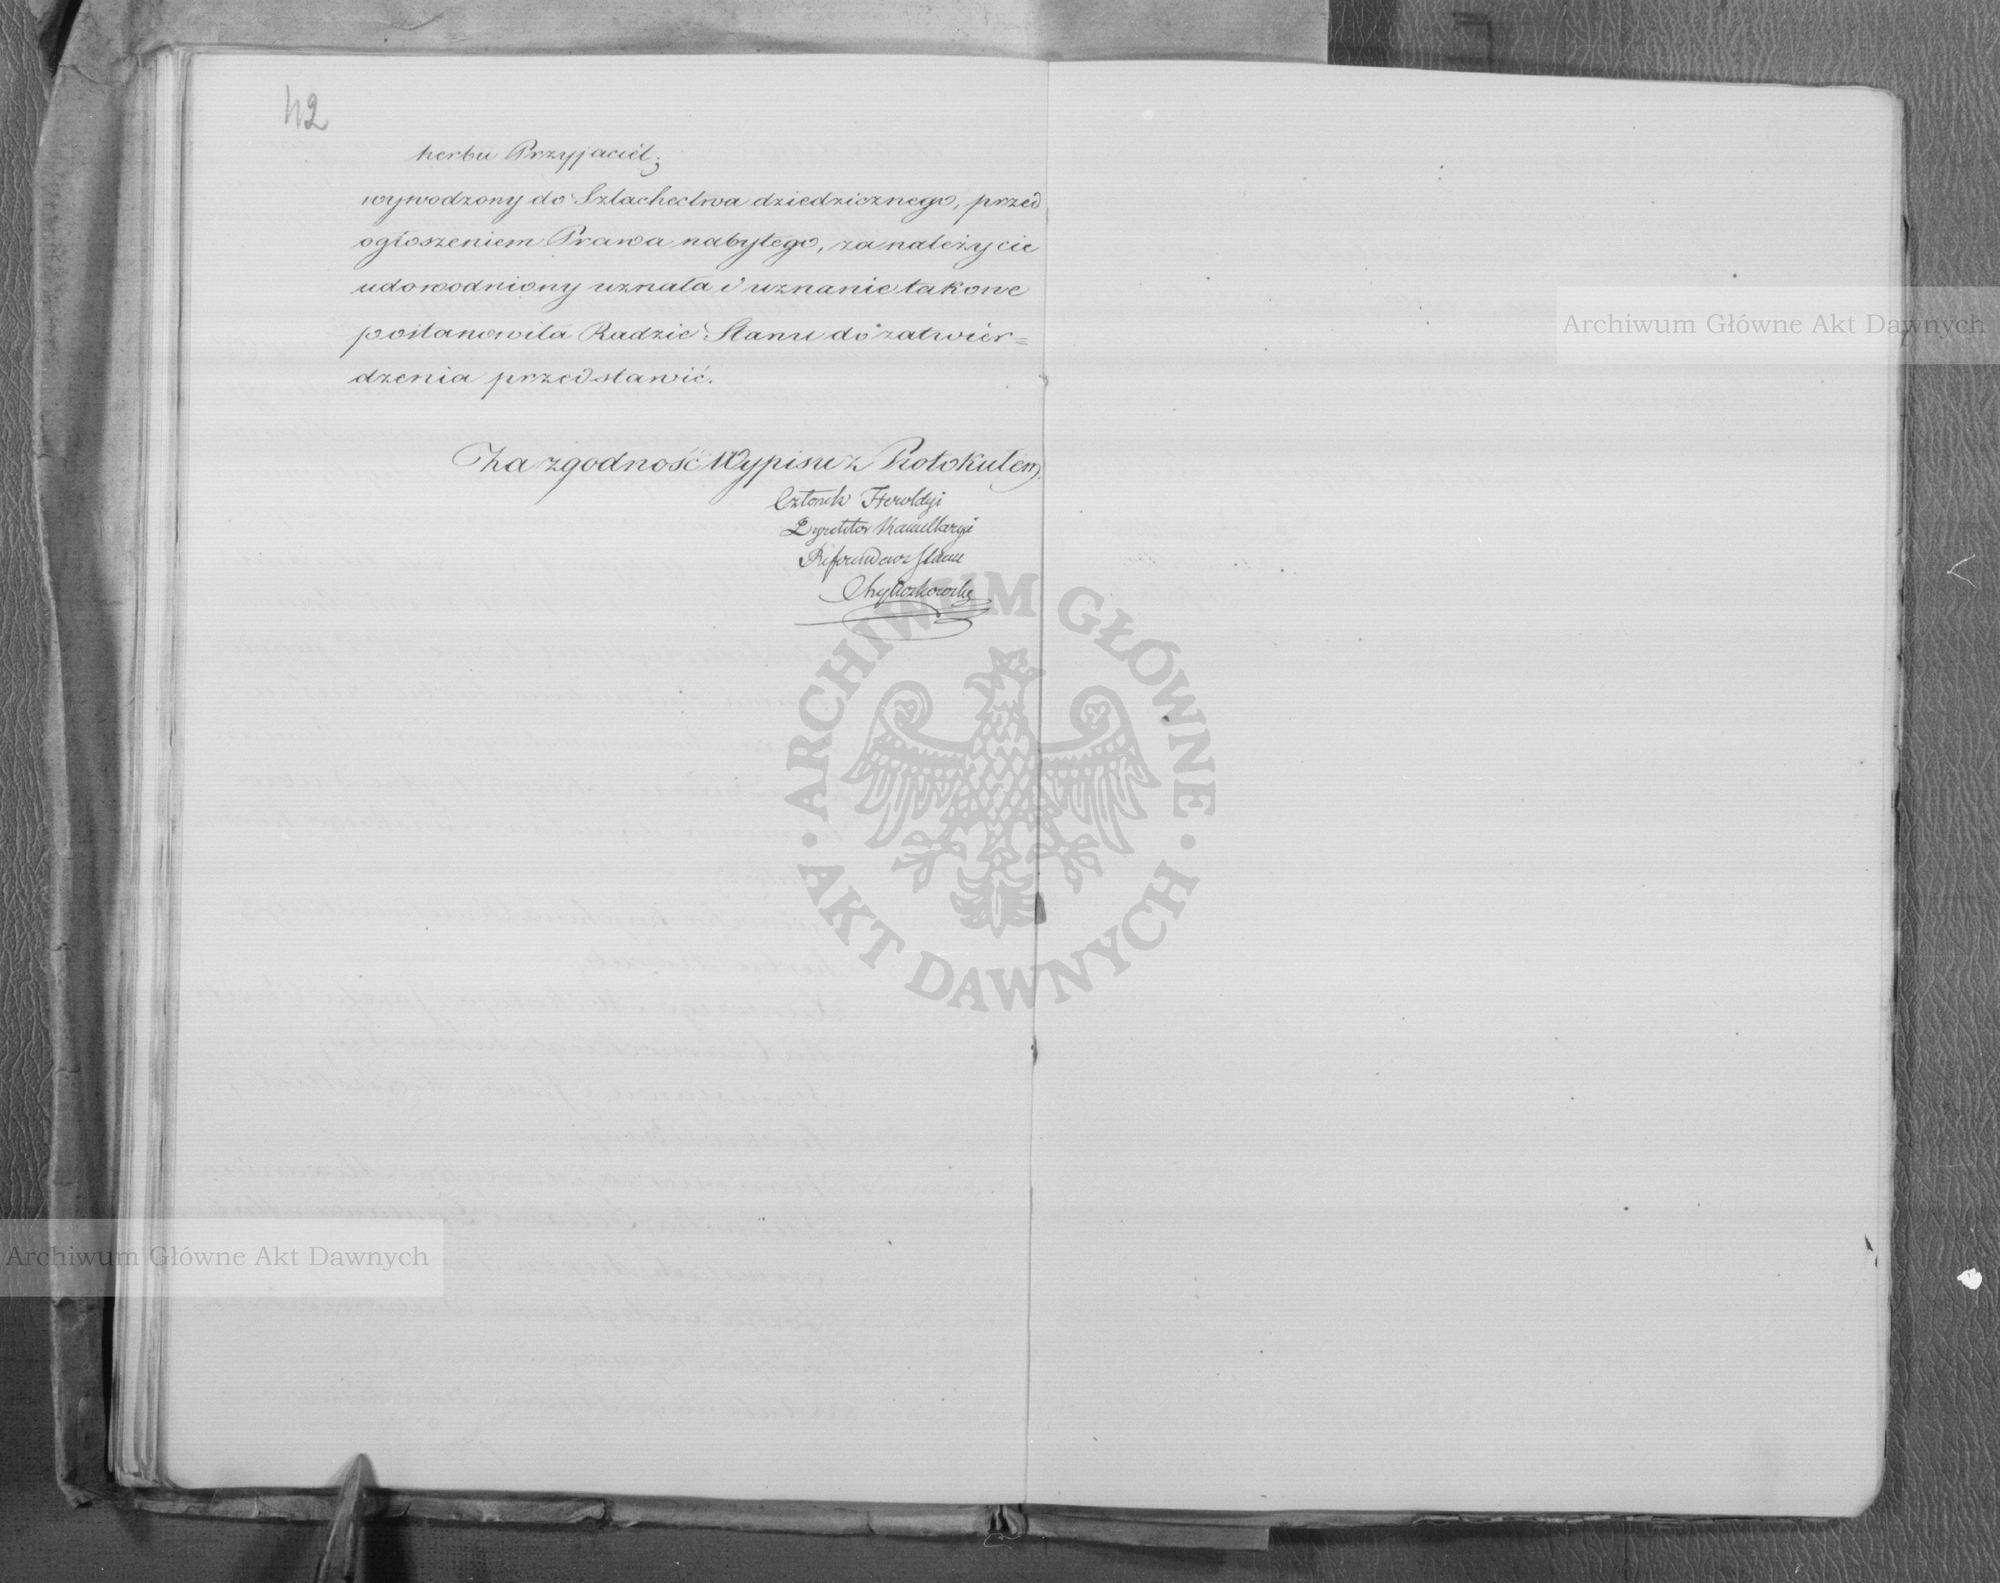 42
herbu Przyjaciél;
wywodzony do Szlachectwa dziedzicznego, przed
ogłoszeniem Prawa nabytego, za należycie
udowodniony uznała i uznanie takowe
postanowiła Radzie Stanu do zatwier=
dzenia przedstawić.
Za zgodność Wypisu z Protokułem
Członek Heroldyi
Dyrektor Kancellaryi
Referendarz Stanu
Archiwum Główne Akt Dawnych
ARCHIWUM GŁÓWNE
AKT DAWNYCH
Archiwum Główne Akt Dawnych